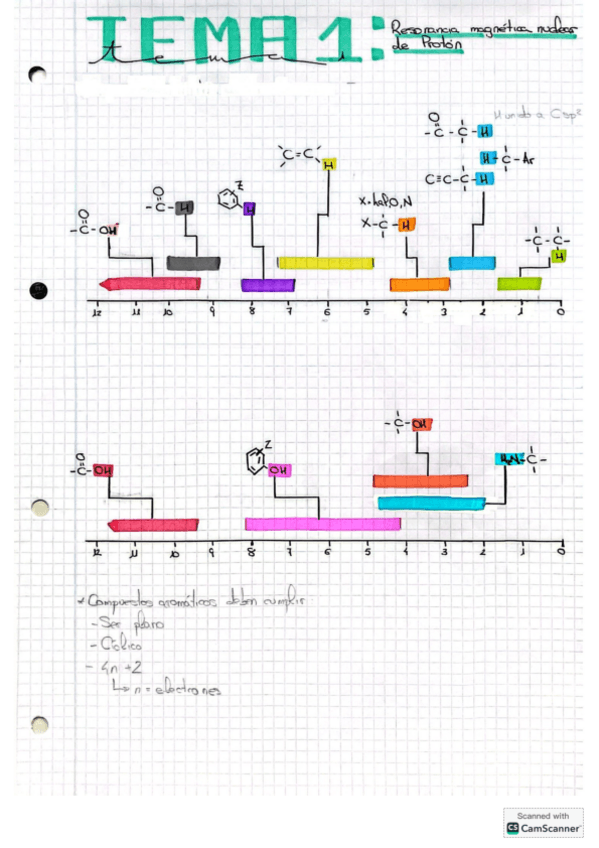 TEMA 1:
tema 1
Resonancia magnética nuclear
de Protón
Unido a Csp²
O
-C-C-H
H-C-Ar
C≡C-C-H
C=C
H
Z
H
O
-C-H
O
-C-OH
X=hal,O,N
X-C-H
-C-C-
H
12 11 10 9 8 7 6 5 4 3 2 1 0
-C-OH
O
-C-OH
Z
OH
H₂N-C-
12 11 10 9 8 7 6 5 4 3 2 1 0
Compuestos aromáticos deben cumplir:
- Ser plano
- Cíclico
- 4n+2
↳ n = electrones
Scanned with
CS CamScanner